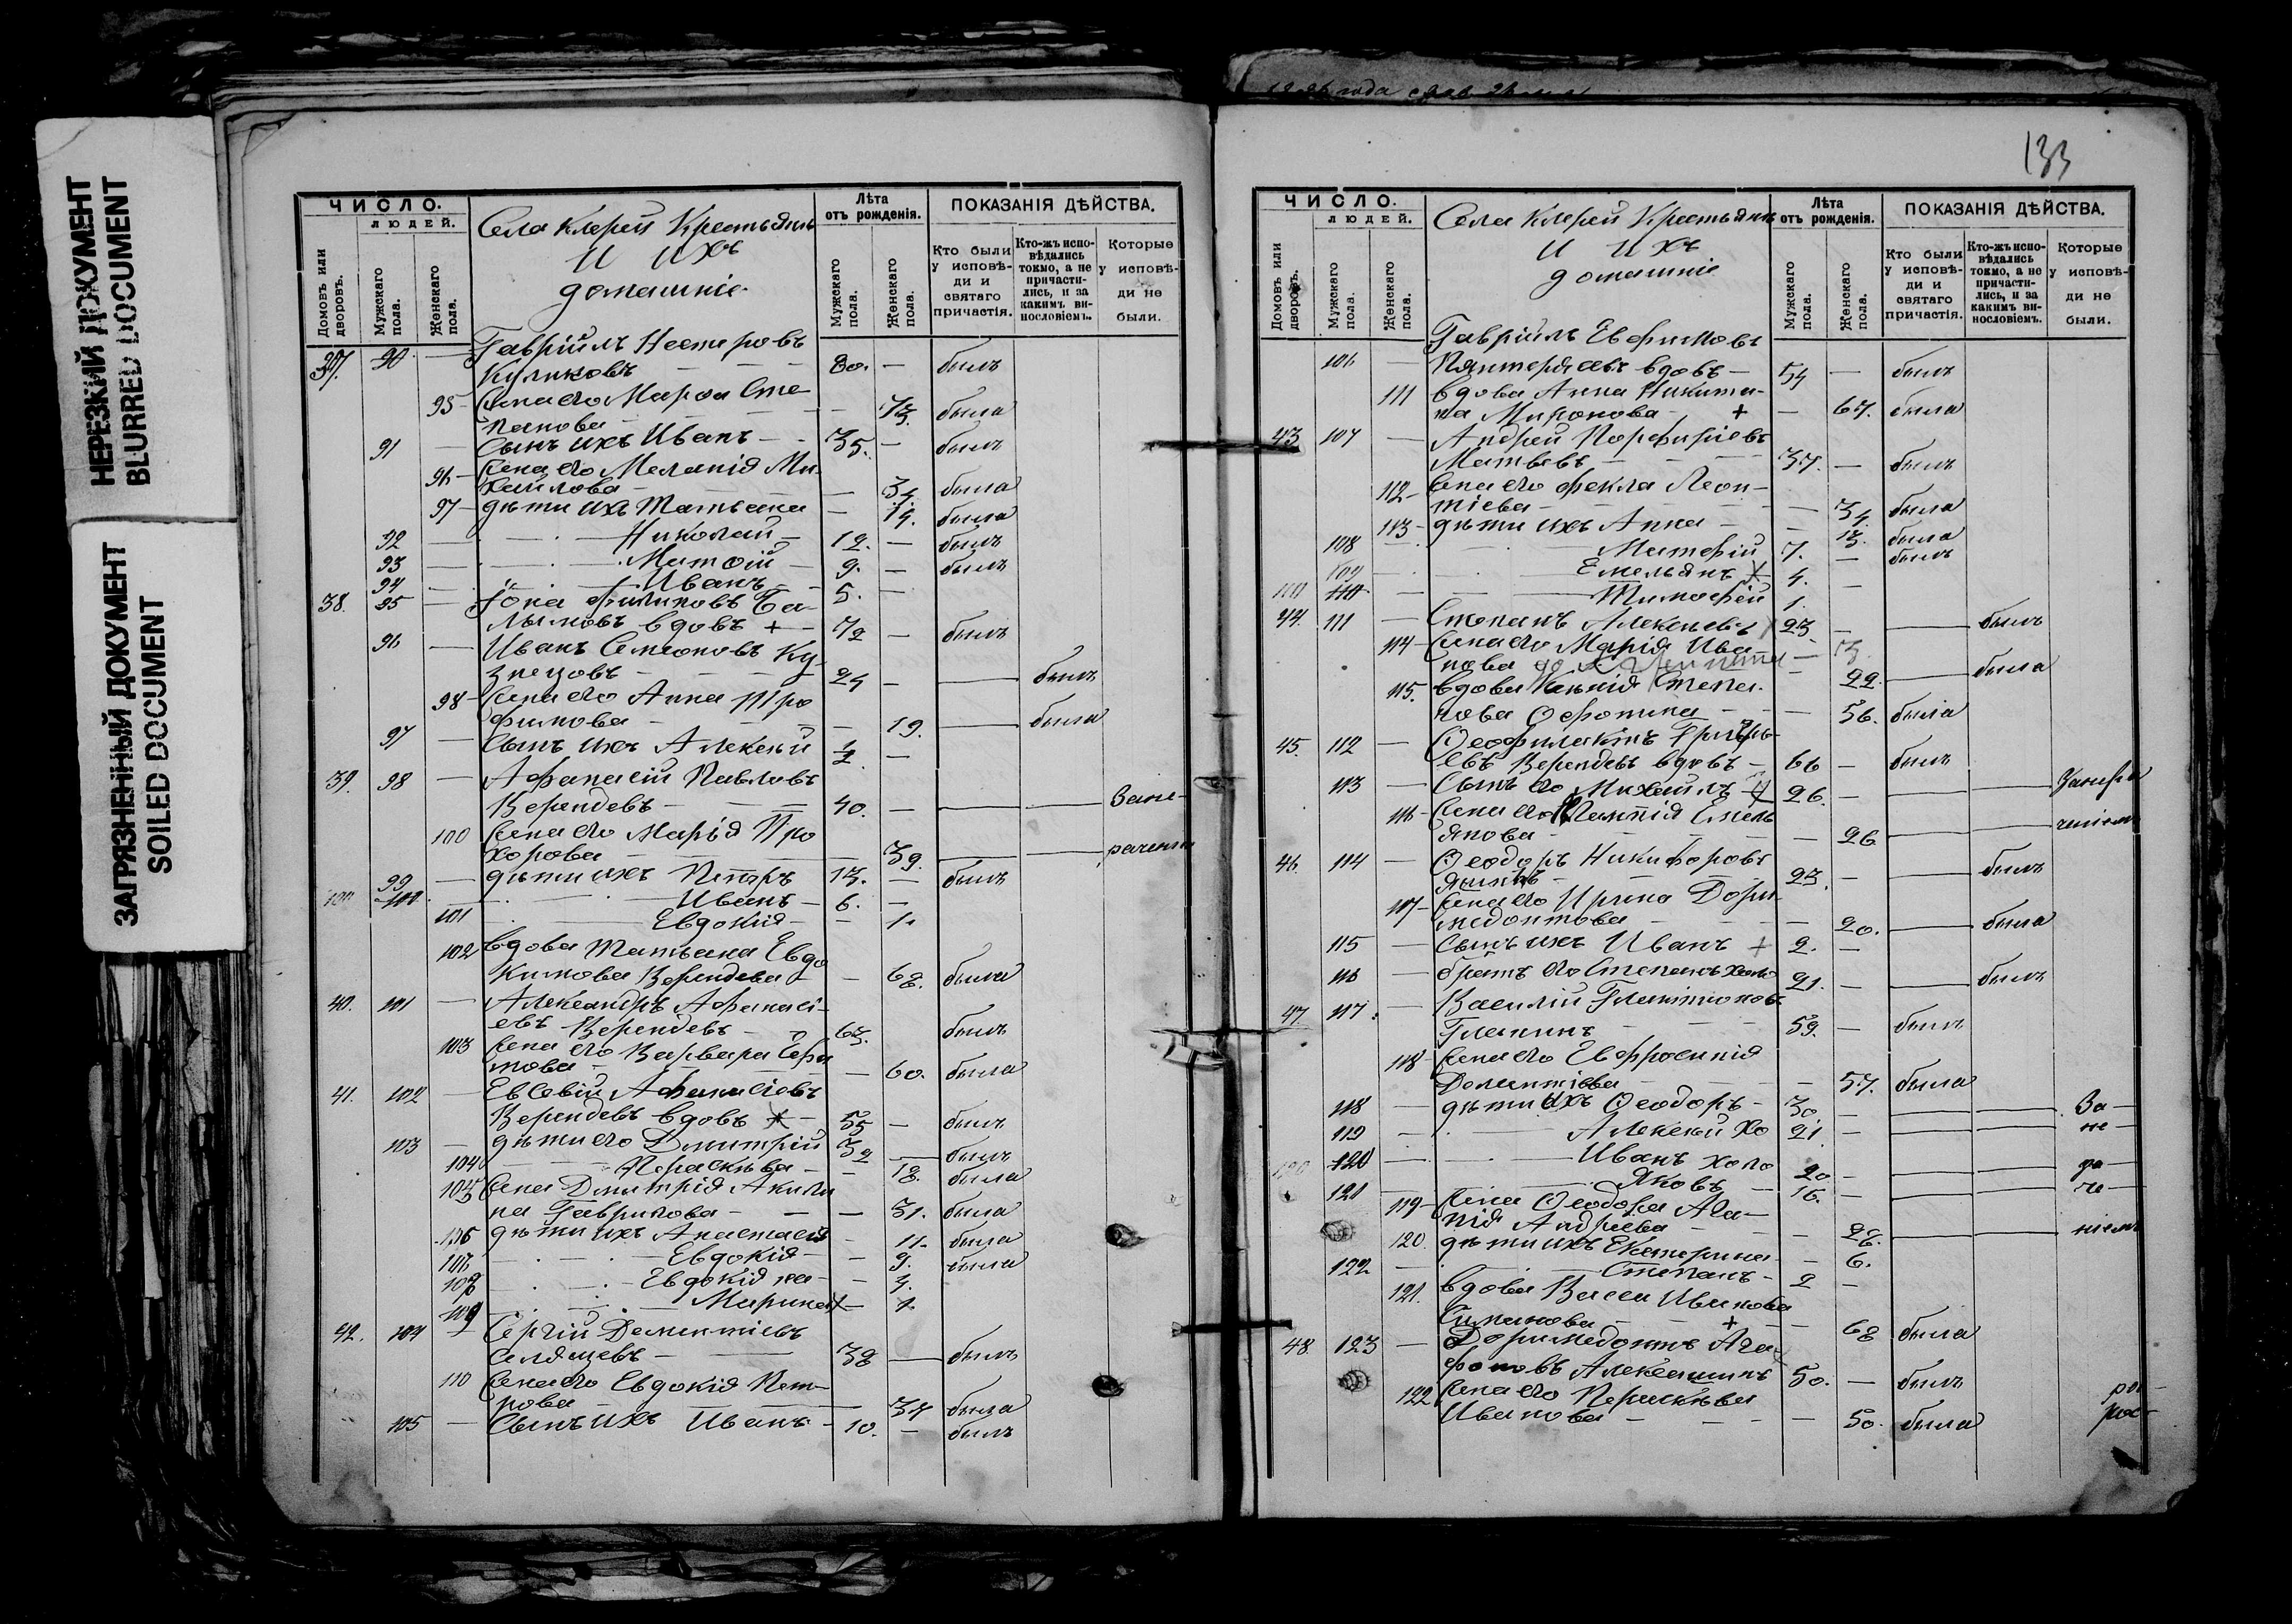 НЕРЕЗКИЙ ДОКУМЕНТ
BLURRED DOCUMENT
ЗАГРЯЗНЕННЫЙ ДОКУМЕНТ
SOILED DOCUMENT
ЧИСЛО.
ЛЮДЕЙ.
Домовъ или дворовъ.
Мужскаго пола.
Женскаго пола.
Села Клерей Крестьянъ
и ихъ
домашніе
Лѣта
отъ рожденія.
Мужскаго пола.
Женскаго пола.
ПОКАЗАНІЯ ДѢЙСТВА.
Кто были у исповѣди и святаго причастія.
Кто-жъ исповѣдались токмо, а не причастились, и за какимъ винословіемъ.
Которые у исповѣди не были.
37. 90 — Гавріилъ Нестеровъ
Куликовъ — 80. — былъ
95 — Жена его Марѳа Сте
панова — 73. была
91 — Сынъ ихъ Иванъ — 35. — былъ
96 — Жена его Меланія Ми
хайлова — 34. была
97 — дѣти ихъ Татьяна — 14. была
92 — Николай — 12. — былъ
93 — 9. — былъ
94 — Иванъ — 5. —
38. 95 — Іона Филиповъ Ба-
вдовъ + — 72 — былъ
96 — Иванъ Симеоновъ Ку-
знецовъ — 24 — былъ
98 — Жена его Анна Тро
фимова — 19. — была
97 — Сынъ ихъ Алексѣй 1/2 —
39. 98 — Афанасій Павловъ
Верендевъ — 40. — Запи-
100 Жена его Марія Про
хорова — 39.
99 — дѣти ихъ Петръ 13. — былъ
100 Иванъ — 6. —
101 Евдокія — 1.
102 вдова Татьяна Евдо
кимова Верендева — 68. была
40. 101 — Александръ Афанасі-
евъ Верендевъ — 63. былъ
103 Жена его Варвара Ефи
мова — 60. была
41. 102 — Евсевій Афанасіевъ
Верендевъ вдовъ — 55 — былъ
103 — дѣти его Дмитрій 32 — былъ
104 Параскева — 18. была
105 Жена Дмитрія Акили
на Гаврилова — 31. была
106 дѣти ихъ Анастасія 11. была
107 Евдокія — 9. была
108 Евдокія — 4.
109 Марина — 1.
42. 104 Сергій Дементіевъ
38 — былъ
110 Жена его Евдокія Пет-
рова — 34 была
105 — Сынъ ихъ Иванъ — 10. — былъ
133
ЧИСЛО.
ЛЮДЕЙ.
Домовъ или дворовъ.
Мужскаго пола.
Женскаго пола.
Села Клерей Крестьянъ
и ихъ
домашніе
Лѣта
отъ рожденія.
Мужскаго пола.
Женскаго пола.
ПОКАЗАНІЯ ДѢЙСТВА.
Кто были у исповѣди и святаго причастія.
Кто-жъ исповѣдались токмо, а не причастились, и за какимъ винословіемъ.
Которые у исповѣди не были.
Гавріилъ Евфимовъ
106 — вдовъ — 54 — былъ
111 вдова Анна Никити-
на Миронова + — 67. была
43 107 — Андрей Порфиріевъ
Матвѣевъ — 37. — былъ
112 — Жена его Фекла Леон-
тіева — 34 была
113 — дѣти ихъ Анна — 13. была
108 7. — былъ
109 Емельянъ 4. —
110 Тимофей 1.
44. 111 — Степанъ Алексѣевъ 23 — былъ
114 — Жена его Марія Ива
нова 22. — была
115. вдова Ксенія Степа-
нова Офонина — 56. была
45. 112 — Ѳеофилактъ Григорь-
евъ Верендевъ вдовъ — 66 — былъ
113 — Сынъ его Михаилъ 26. —
116 — Жена его Емель
янова — 26
46. 114 — Ѳеодоръ Никифоровъ
23. — былъ
117 — Жена его Ирина Дори
медонтова — 20. — была
115 — Сынъ ихъ Иванъ + 2. —
116 — братъ его Степанъ холо 21. — былъ
47. 117. — Василій
59. — былъ
118 — Жена его Евфросинія
Дементіева — 57. была
118 — дѣти ихъ Ѳеодоръ — 30. — За-
119 — Алексѣй Хо 21 — не-
120 — Иванъ холо 20 —
121 Яковъ 16. —
119 — Жена Ѳеодора Ага-
пія Андреева — 28. — ніемъ
120. дѣти ихъ Екатерина — 6.
122 — Степанъ — 2 —
121. вдова Васса Иванова
+ — 68 была
48. 123 — Доримедонтъ Ага-
фоновъ Алексашинъ 50. — былъ
122 Жена его Параскева
Иванова — 50. была